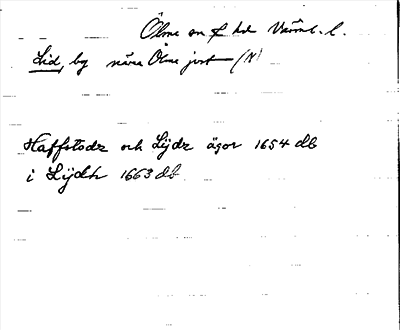 Ölme sn f hd Värml. l.
Lid, by nära Ölme jvst (N)
Haffstodz och Lijdz ägor 1654 db
i Lijdh 1663 db